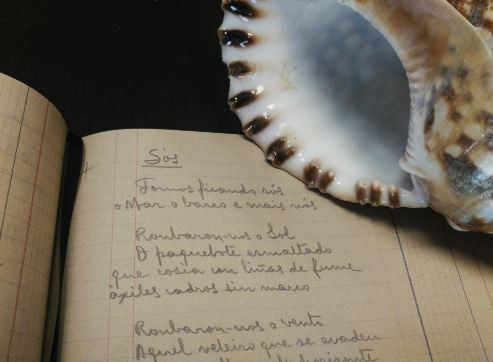 Sós
Fomos ficando sós
o Mar o barco e mais nós
Roubaron-nos o Sol
O paquebote esmaltado
que cosia con liñas de fume
áxiles cadros sin marco
Roubaron-nos o vento
Aquel veleiro que se evadeu
horizonte